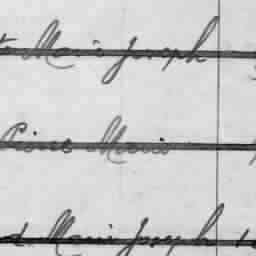 Marie Joseph
Pierre Marie
Marie Joseph